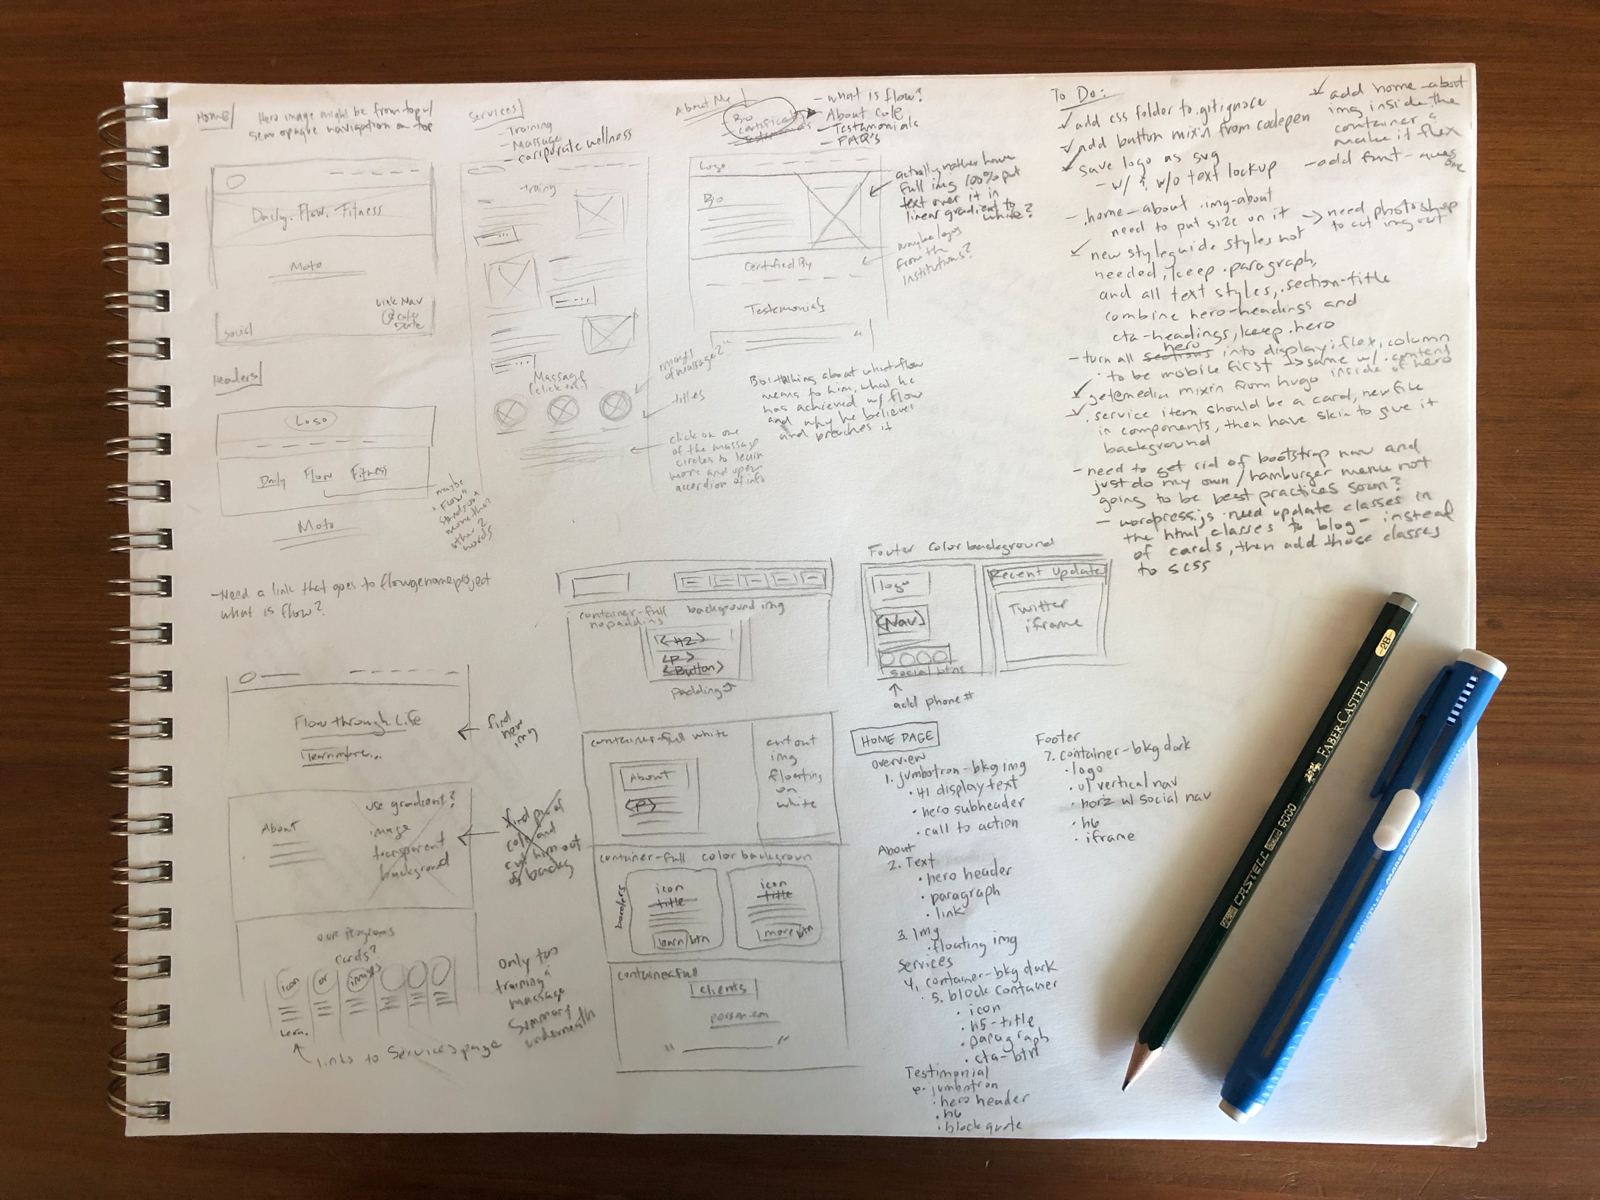 Home
Hero image might be from top w/
semi opaque navigation on top
Daily. Flow. Fitness
Moto
social
Link Nav
Headers
Logo
Daily Flow Fitness
Moto
maybe
"Flow"
more than
other 2
words
- Need a link that goes to flowgenomeproject
what is flow?
Services
- Training
- Massage
- corporate wellness
Training
Massage
(click on)
titles
click on one
of the massage
circles to learn
more and open
accordion of info
About Me
Bio
certificates
- what is flow?
- About Cole
- Testamonials
- FAQ's
Logo
Bio
Certified By
Testemonials
actually rather have
full img 100% put
text over it in
linear gradient to
white?
maybe logos
from the
institutions?
Bio: talking about what flow
means to him, what he
has achieved w/ flow
and why he believes
and preaches it
To Do:
add css folder to .gitignore
add button mixin from codepen
save logo as svg
- w/ & w/o text lockup
- .home-about .img-about
need to put size on it
→ need photoshop
to cut img out
new styleguide styles not
needed, keep .paragraph,
and all text styles, .section-title
combine hero-headings and
cta-headings, keep .hero
hero
- turn all sections into display:flex, column
to be mobile first → same w/ .content
inside of hero
get @media mixin from hugo
service item should be a card, new file
in components, then have skin to give it
background
- need to get rid of bootstrap nav and
just do my own / hamburger menu not
going to be best practices soon?
- wordpress.js need update classes in
the html classes to blog- instead
of cards, then add those classes
to scss
add home-about
img inside the
container &
make it flex
- add font-awesome
Flow through Life
learn more...
find
new
img
About
use gradient?
image
transparent
background
find pic of
cole and
cut him out
of backg
our programs
cards?
icon
or
images
Learn
links to Services page
Only two
training &
massage
Summary
underneath
container-full
no padding
background img
<H2>
<P>
<Button>
padding
container-full white
About
<P>
cut out
img
floating
on
white
container-full color background
borders
icon
title
learn btn
icon
title
more btn
container full
clients
Footer color background
logo
<Nav>
social btns
add phone #
Recent Updates
Twitter
iframe
HOME PAGE
Overview
1. jumbotron-bkg img
• H1 display text
• hero subheader
• call to action
About
2. Text
• hero header
• paragraph
• link
3. Img
• floating img
Services
4. container-bkg dark
5. block container
• icon
• h5-title
• paragraph
• cta-btn
Testimonial
6. jumbotron
• hero header
• h6
• block quote
Footer
7. container-bkg dark
• logo
• ul vertical nav
• horiz ul social nav
• h6
• iframe
2B
FABER-CASTELL
CASTELL 9000